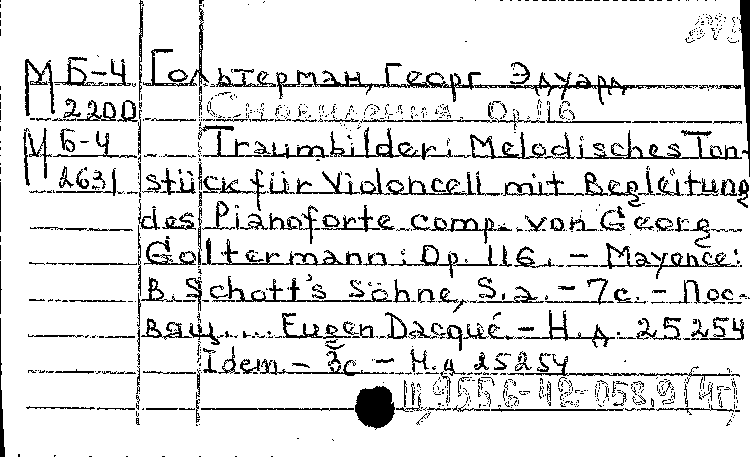 М Б-4 Гольтерман, Георг Эдуард
2200 Сновидения. Op. 116
М Б-4 Traumbilder: Melodisches Ton-
2631 stück für Violoncell mit Begleitung
des Pianoforte comp. von Georg
Goltermann: Op. 116. - Mayence:
B. Schott's Söhne, S. a. - 7 с. - Пос-
вящ.... Eugen Dacqué. - Н. д. 25254
Idem. - 3с. - Н. д 25254
Ш, 955.6-42-058.9 (4г)